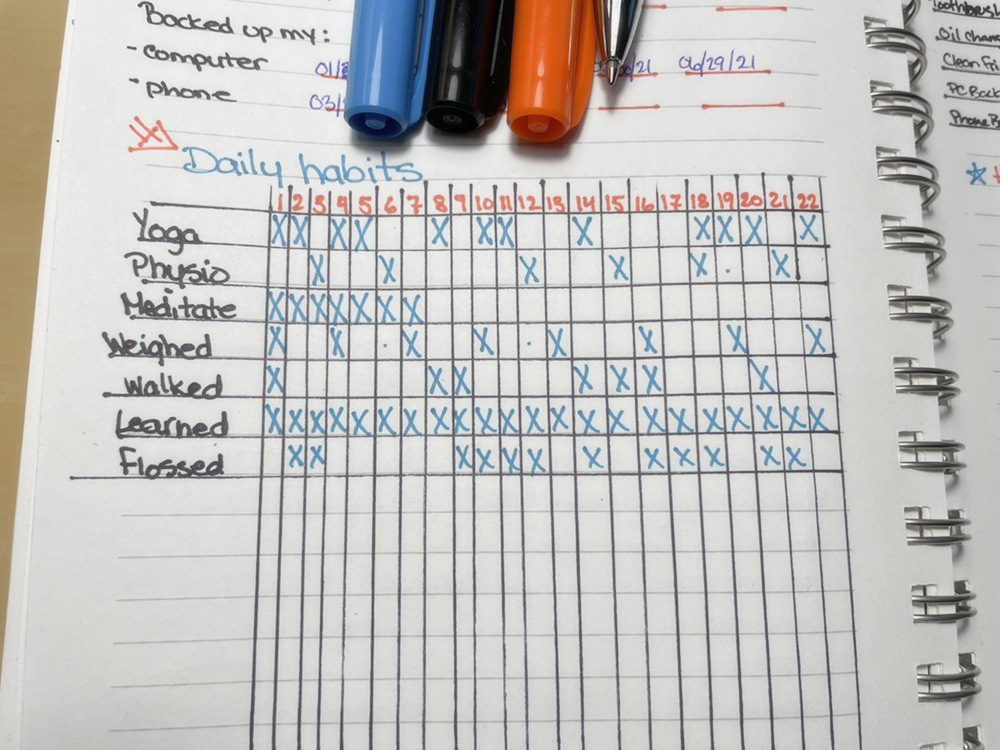 Backed up my:
- computer 01/ /21 06/29/21
- phone 03/
Daily habits
1 2 3 4 5 6 7 8 9 10 11 12 13 14 15 16 17 18 19 20 21 22
Yoga X X X X X X X X X X X X
Physio X X X X X . X
Meditate X X X X X X X
Weighed X X . X X . X X X X
Walked X X X X X X X
Learned X X X X X X X X X X X X X X X X X X X X X X
Flossed X X X X X X X X X X X X
Toothbrush
Oil Chan
Clean Fri
PC Back
Phone B